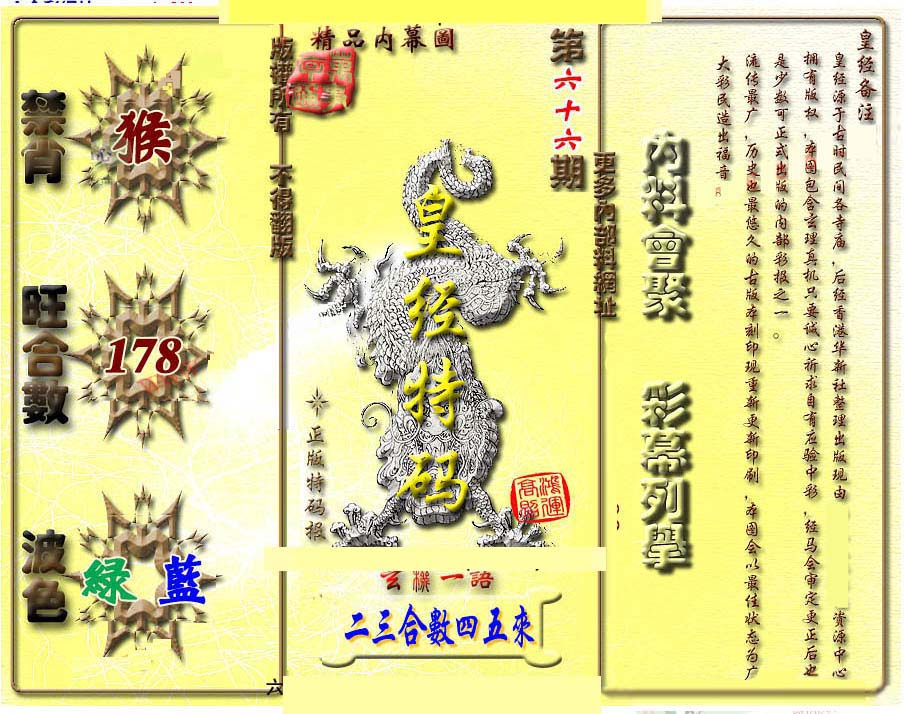 精品内幕圖
第六十六期
版權所有 不得翻版
更多內部料網址
禁肖
猴
旺合數
178
波色
綠 藍
皇经特码
正版特码报
鴻運高照
玄機一語
二三合數四五來
內料會聚
彩幕列舉
皇经备注
皇经源于古时民间各寺庙,后经香港华新社整理出版现由 资源中心
拥有版权,本图包含玄理真机只要诚心祈求自有应验中彩,经马会审定更正后也
是少数可正式出版的内部彩报之一。
流传最广,历史也最悠久的古版本刻印现重新更新印刷,本图会以最佳状态为广
大彩民造出福音
六